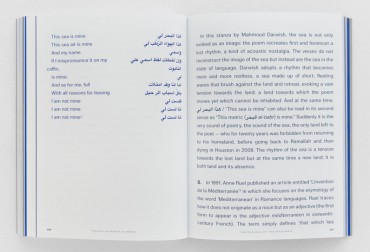 This sea is mine
This sea air is mine
And my name
If I mispronounce it on my
coffin,
is mine:
And as for me, full
With all reasons for leaving
I am not mine
I am not mine
I am not mine!
هذا البحر لي
هذا الهواء الرطب لي
واسمي
وإن أخطأت لفظ اسمي على
التابوت
لي
أما أنا وقد امتلأت
بكل أسباب الرحيل
فلست لي
أنا لست لي
أنا لست لي
In this stanza by Mahmoud Darwish, the sea is not only
evoked as an image; the poem increases first and foremost a
lost rhythm, a kind of acoustic nostalgia. The verses do not
reconstruct the image of the sea but instead are the sea in the
state of language. Darwish adopts a rhythm that becomes
more and more restless, a sea made up of short, fleeting
waves that brush against the land and retreat, evoking a vain
tension towards the land; a land towards which the poem
moves yet which cannot be inhabited. And at the same time,
هذا البحر لي / "This sea is mine" can also be read in its second
sense as "This metric (البحر al-baḥr) is mine." Suddenly it is the
very sound of poetry, the sound of the sea, the only land left
to the poet – who for twenty years was forbidden from returning
to his homeland, before going back to Ramallah and then
dying in Houston in 2008. The rhythm of the sea is a tension
towards the lost land but at the same time a new land; it is
both land and its absence.
5. In 1991, Anne Ruel published an article entitled 'L'invention
de la Méditerranée' in which she focuses on the etymology of
the word 'Mediterranean' in Romance languages. Ruel traces
how it does not originate as a noun but as an adjective (the first
form to appear is the adjective méditerranéen in sixteenth-
century French). The term simply defines that which lies